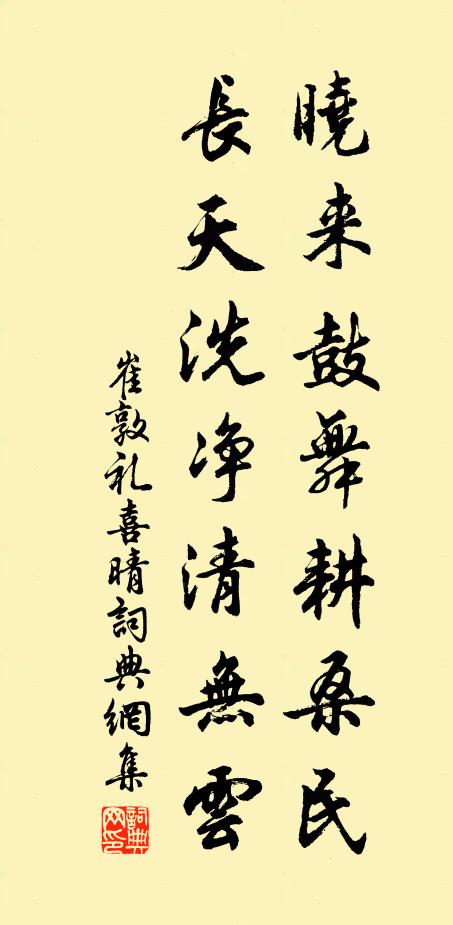 曉来鼓舞耕桑民
長天洗净清無雲
崔敦礼喜晴詞典網集
詞典网印